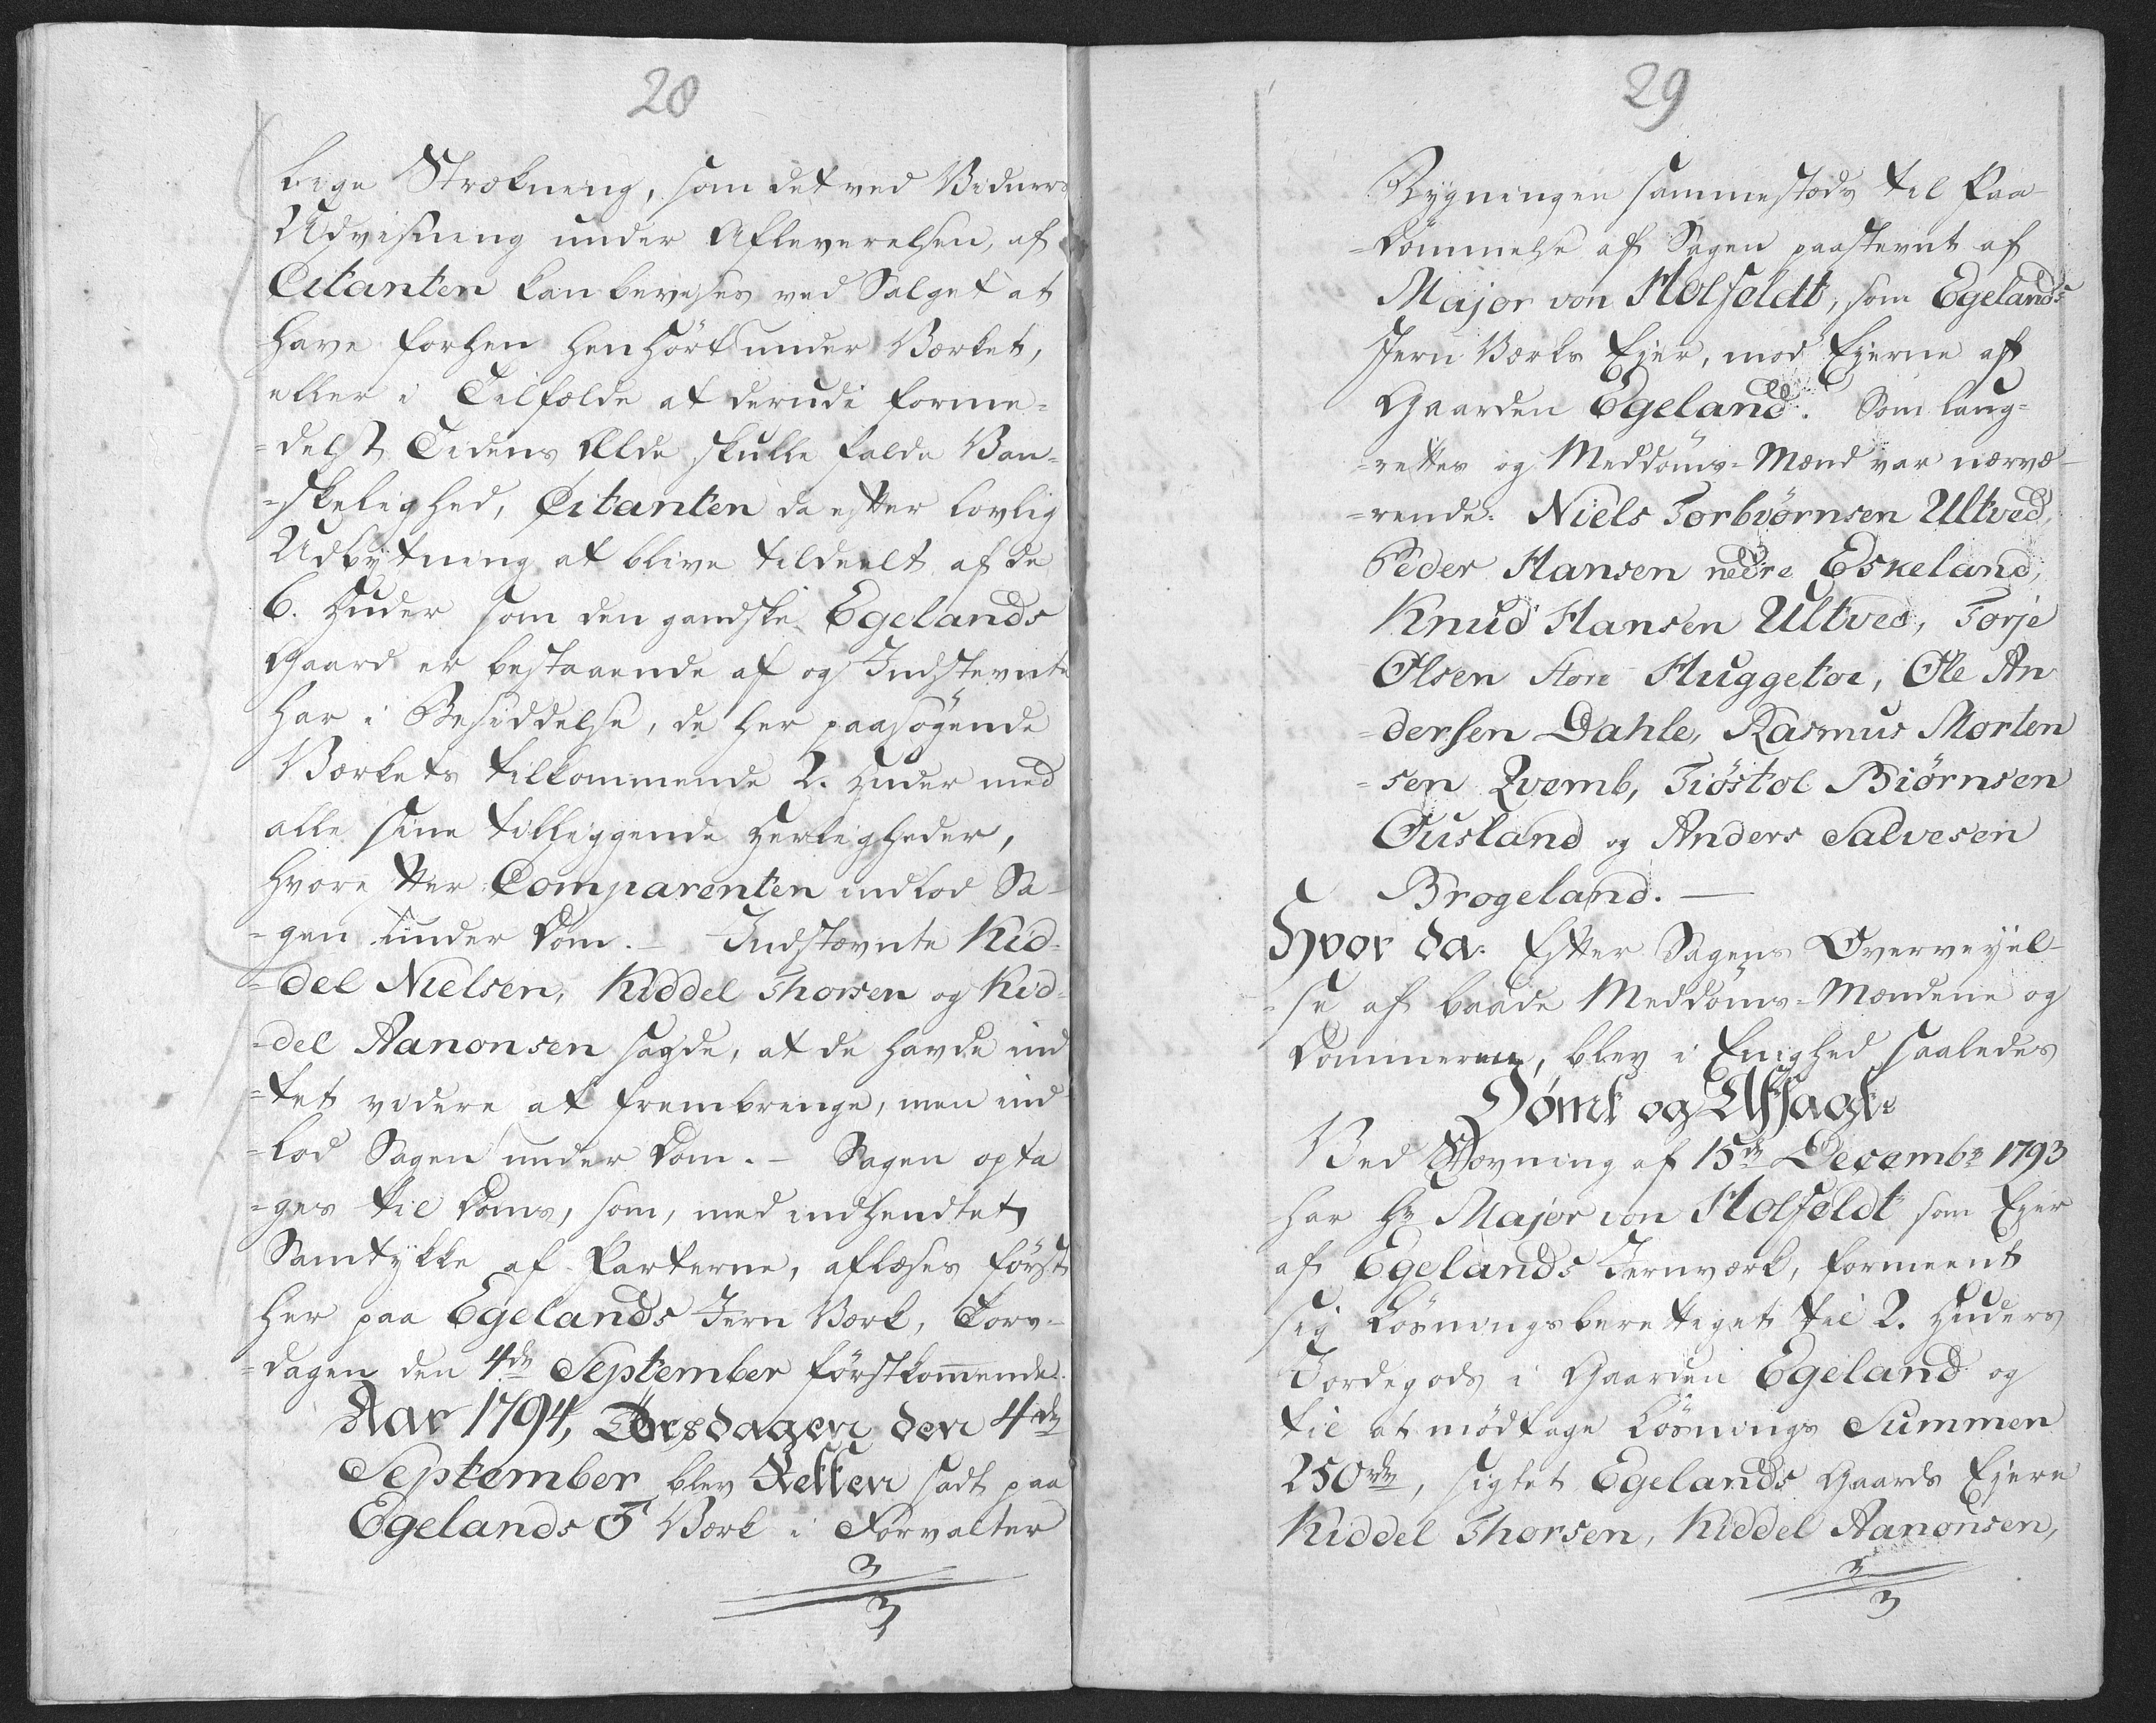 28
lige Strækning, som det ved Vidners
Udvisning under Afleverelsen, af
Citanten kan bevises ved Salget at
have forhen henhört under Værket,
eller i Tilfælde at derudi forme-
=delst Tidens Ælde skulle falde Van-
=skelighed, Citanten da efter lovlig
Udbytning at blive tildeelt af de
6. Huder som den gandske Egelands
Gaard er bestaaende af og Indstevnte
har i Besiddelse, de her paasögende
Værkets tilkommende 2. Huder med
alle sine tilliggende Herligheder,
hvorefter Comparenten indlod Sa-
=gen under Dom. – Indstævnte Kid-
=del Nielsen, Kiddel Thorsen og Kid-
=del Aanonsen sagde, at de havde ind
=tet videre at frembringe, men ind
=lod Sagen under Dom. – Sagen opta
=ges til Doms, som, med indhendtet
Samtykke af Parterne, aflæses først
her paa Egelands Jern Værk, Tors-
=dagen den 4de September förstkommende.
Aar 1794, Torsdagen den 4de
September blev Retten sadt paa
Egelands ♂ Værk i Forvalter
29
Bygningen sammestæds til Paa
=dömmelse af Sagen paastevnt af
Major von Holfeldt, som Egelands
Jern Værks Ejer, mod Ejerne af
Gaarden Egeland. Som laug-
=rettes og Meddoms-Mænd var nærvæ-
=rende: Niels Torbiörnsen Ultved,
Peder Hansen nedre Eskeland,
Knud Hansen Ultved, Torje
Olsen Store Huggetoe, Ole An
=dersen Dahle, Rasmus Morten
=sen Qvemb, Tiöstol Biörnsen
Ousland og Anders Salvesen
Brogeland. —
Hvor da: Efter Sagens Overveyel-
=se af baade Meddoms-Mændene og
Dommeren, blev i Enighed saaledes
Dömt og Afsagt:
Ved Stævning af 15de Decembr 1793
har Hr Major von Holfeldt som Ejer
af Egelands Jernværk, formeent
sig Lösningsberettiget til 2. Huders
Jordegods i Gaarden Egeland og
til at modtage Lösnings Summen
250rdr, sigtet Egelands Gaards Ejere
Kiddel Thorsen, Kiddel Aanonsen,